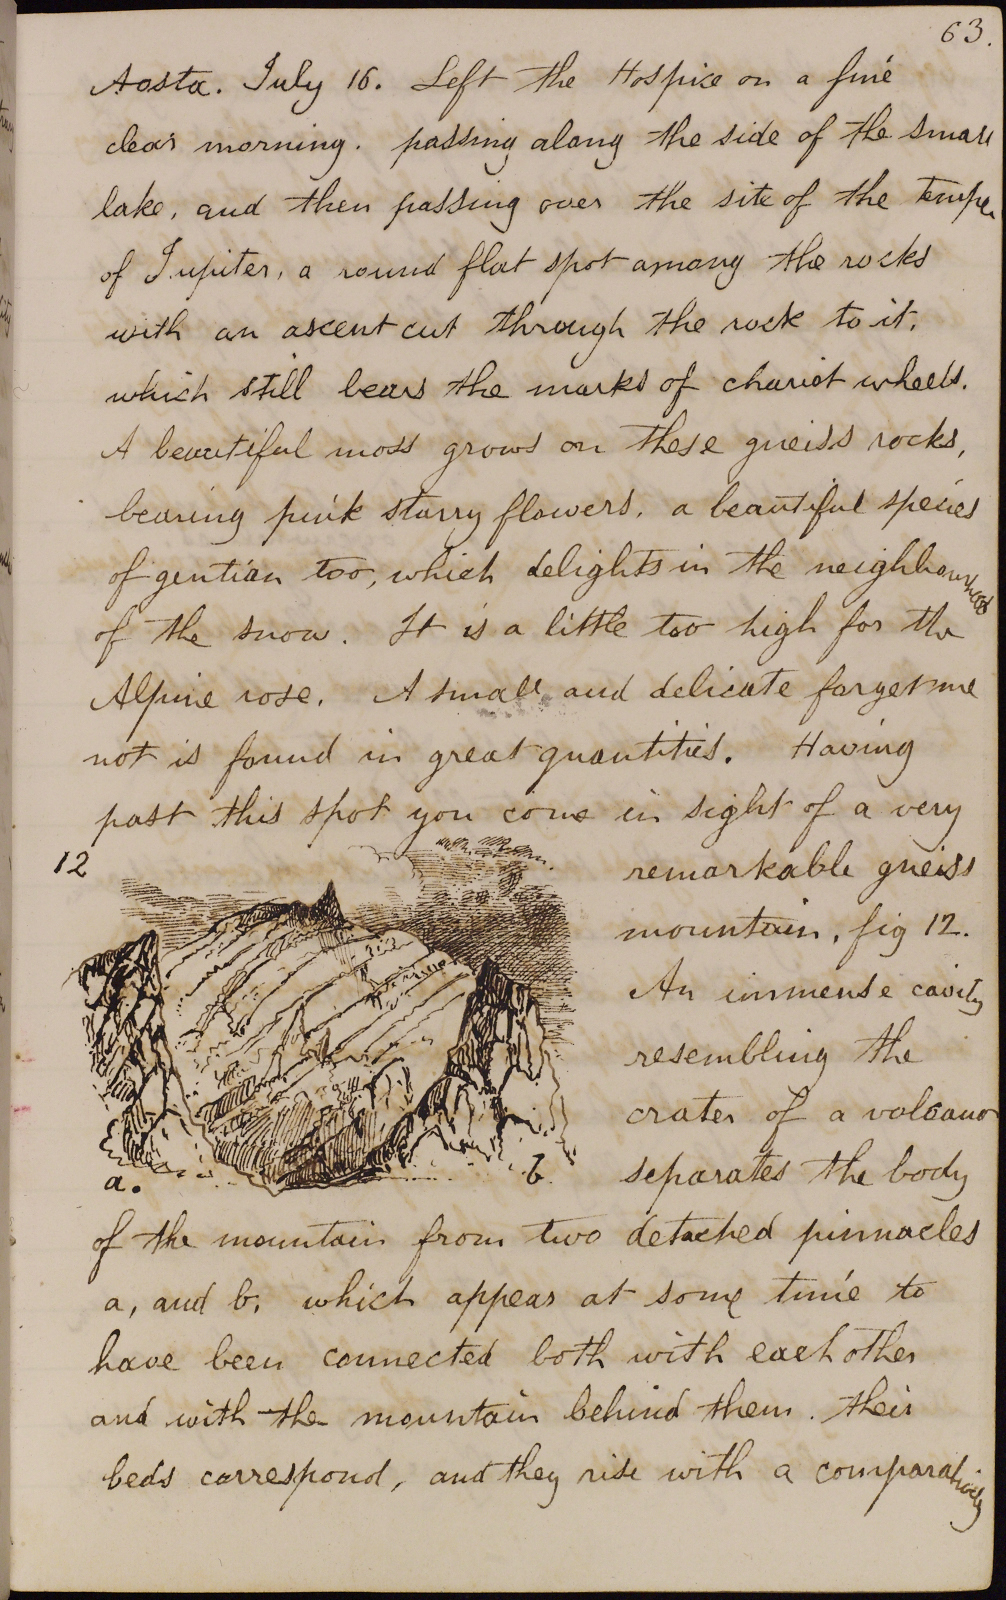 63.
Aosta. July 16. Left the Hospice on a fine
clear morning. passing along the side of the small
lake, and then passing over the site of the temple
of Jupiter, a round flat spot among the rocks
with an ascent cut through the rock to it.
which still bears the marks of chariot wheels.
A beautiful moss grows on these gneiss rocks,
bearing pink starry flowers. a beautiful species
of gentian too, which delights in the neighbourhood
of the snow. It is a little too high for the
Alpine rose. A small and delicate forget me
not is found in great quantities. Having
past this spot you come in sight of a very
12
remarkable gneiss
mountain, fig 12.
An immense cavity
resembling the
crater of a volcano
separates the body
a. b.
of the mountain from two detached pinnacles
a, and b, which appear at some time to
have been connected both with each other
and with the mountain behind them. their
beds correspond, and they rise with a comparatively